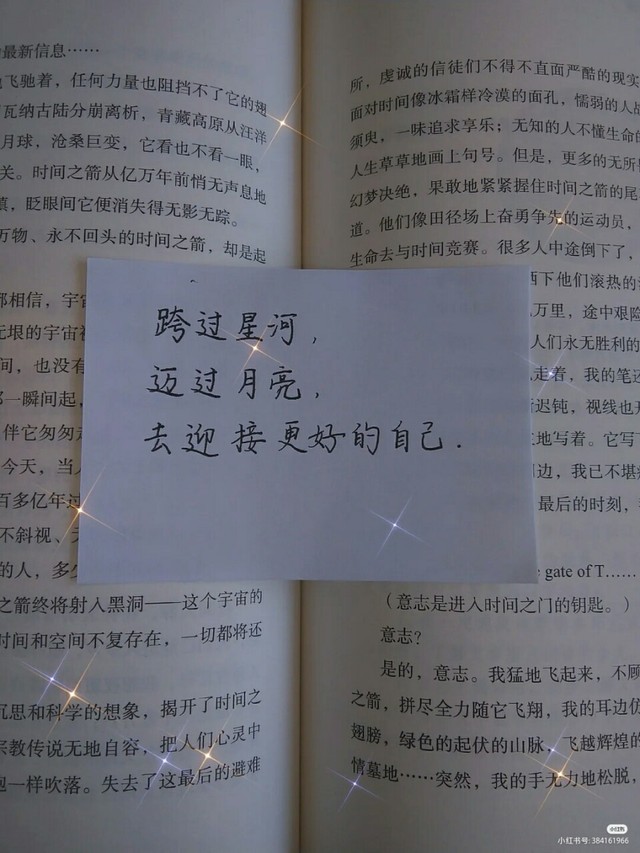 最新信息……
飞驰着，任何力量也阻挡不了它的翅
瓦纳古陆分崩离析，青藏高原从汪洋
月球，沧桑巨变，它看也不看一眼，
关。时间之箭从亿万年前悄无声息地
眨眼间它便消失得无影无踪。
万物、永不回头的时间之箭，却是起
都相信，宇宙
无垠的宇宙
间，也没有
一瞬间起，
伴它匆匆
今天，当
百多亿年过
不斜视、
的人，多
之箭终将射入黑洞——这个宇宙的
时间和空间不复存在，一切都将还
沉思和科学的想象，揭开了时间之
宗教传说无地自容，把人们心灵中
一样吹落。失去了这最后的避难
所，虔诚的信徒们不得不直面严酷的现实
面对时间像冰霜样冷漠的面孔，懦弱的人
须臾，一味追求享乐；无知的人不懂生命的
人生草草地画上句号。但是，更多的无所
幻梦决绝，果敢地紧紧握住时间之箭的尾
道。他们像田径场上奋勇争先的运动员，
生命去与时间竞赛。很多人中途倒下了，
洒下他们滚热的
万里，途中艰险
人们永无胜利的
走着，我的笔还
迟钝，视线也
地写着。它写
边，我已不堪
最后的时刻，
gate of T……
（意志是进入时间之门的钥匙。）
意志？
是的，意志。我猛地飞起来，不顾
之箭，拼尽全力随它飞翔，我的耳边
翅膀，绿色的起伏的山脉，飞越辉煌的
情墓地……突然，我的手无力地松脱，
跨过星河，
迈过月亮，
去迎接更好的自己.
小红书
小红书号: 384161966